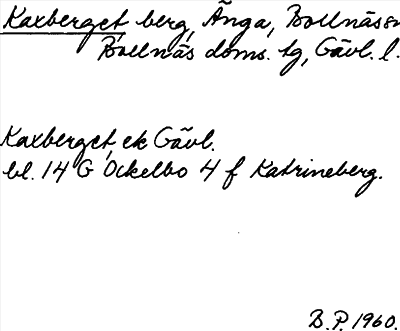 Kaxberget berg, Änga, Bollnäs sn
Bollnäs doms. tg, Gävl. l.
Kaxberget, ek Gävl.
bl. 14 G Ockelbo 4 f Katrineberg.
B. P. 1960.